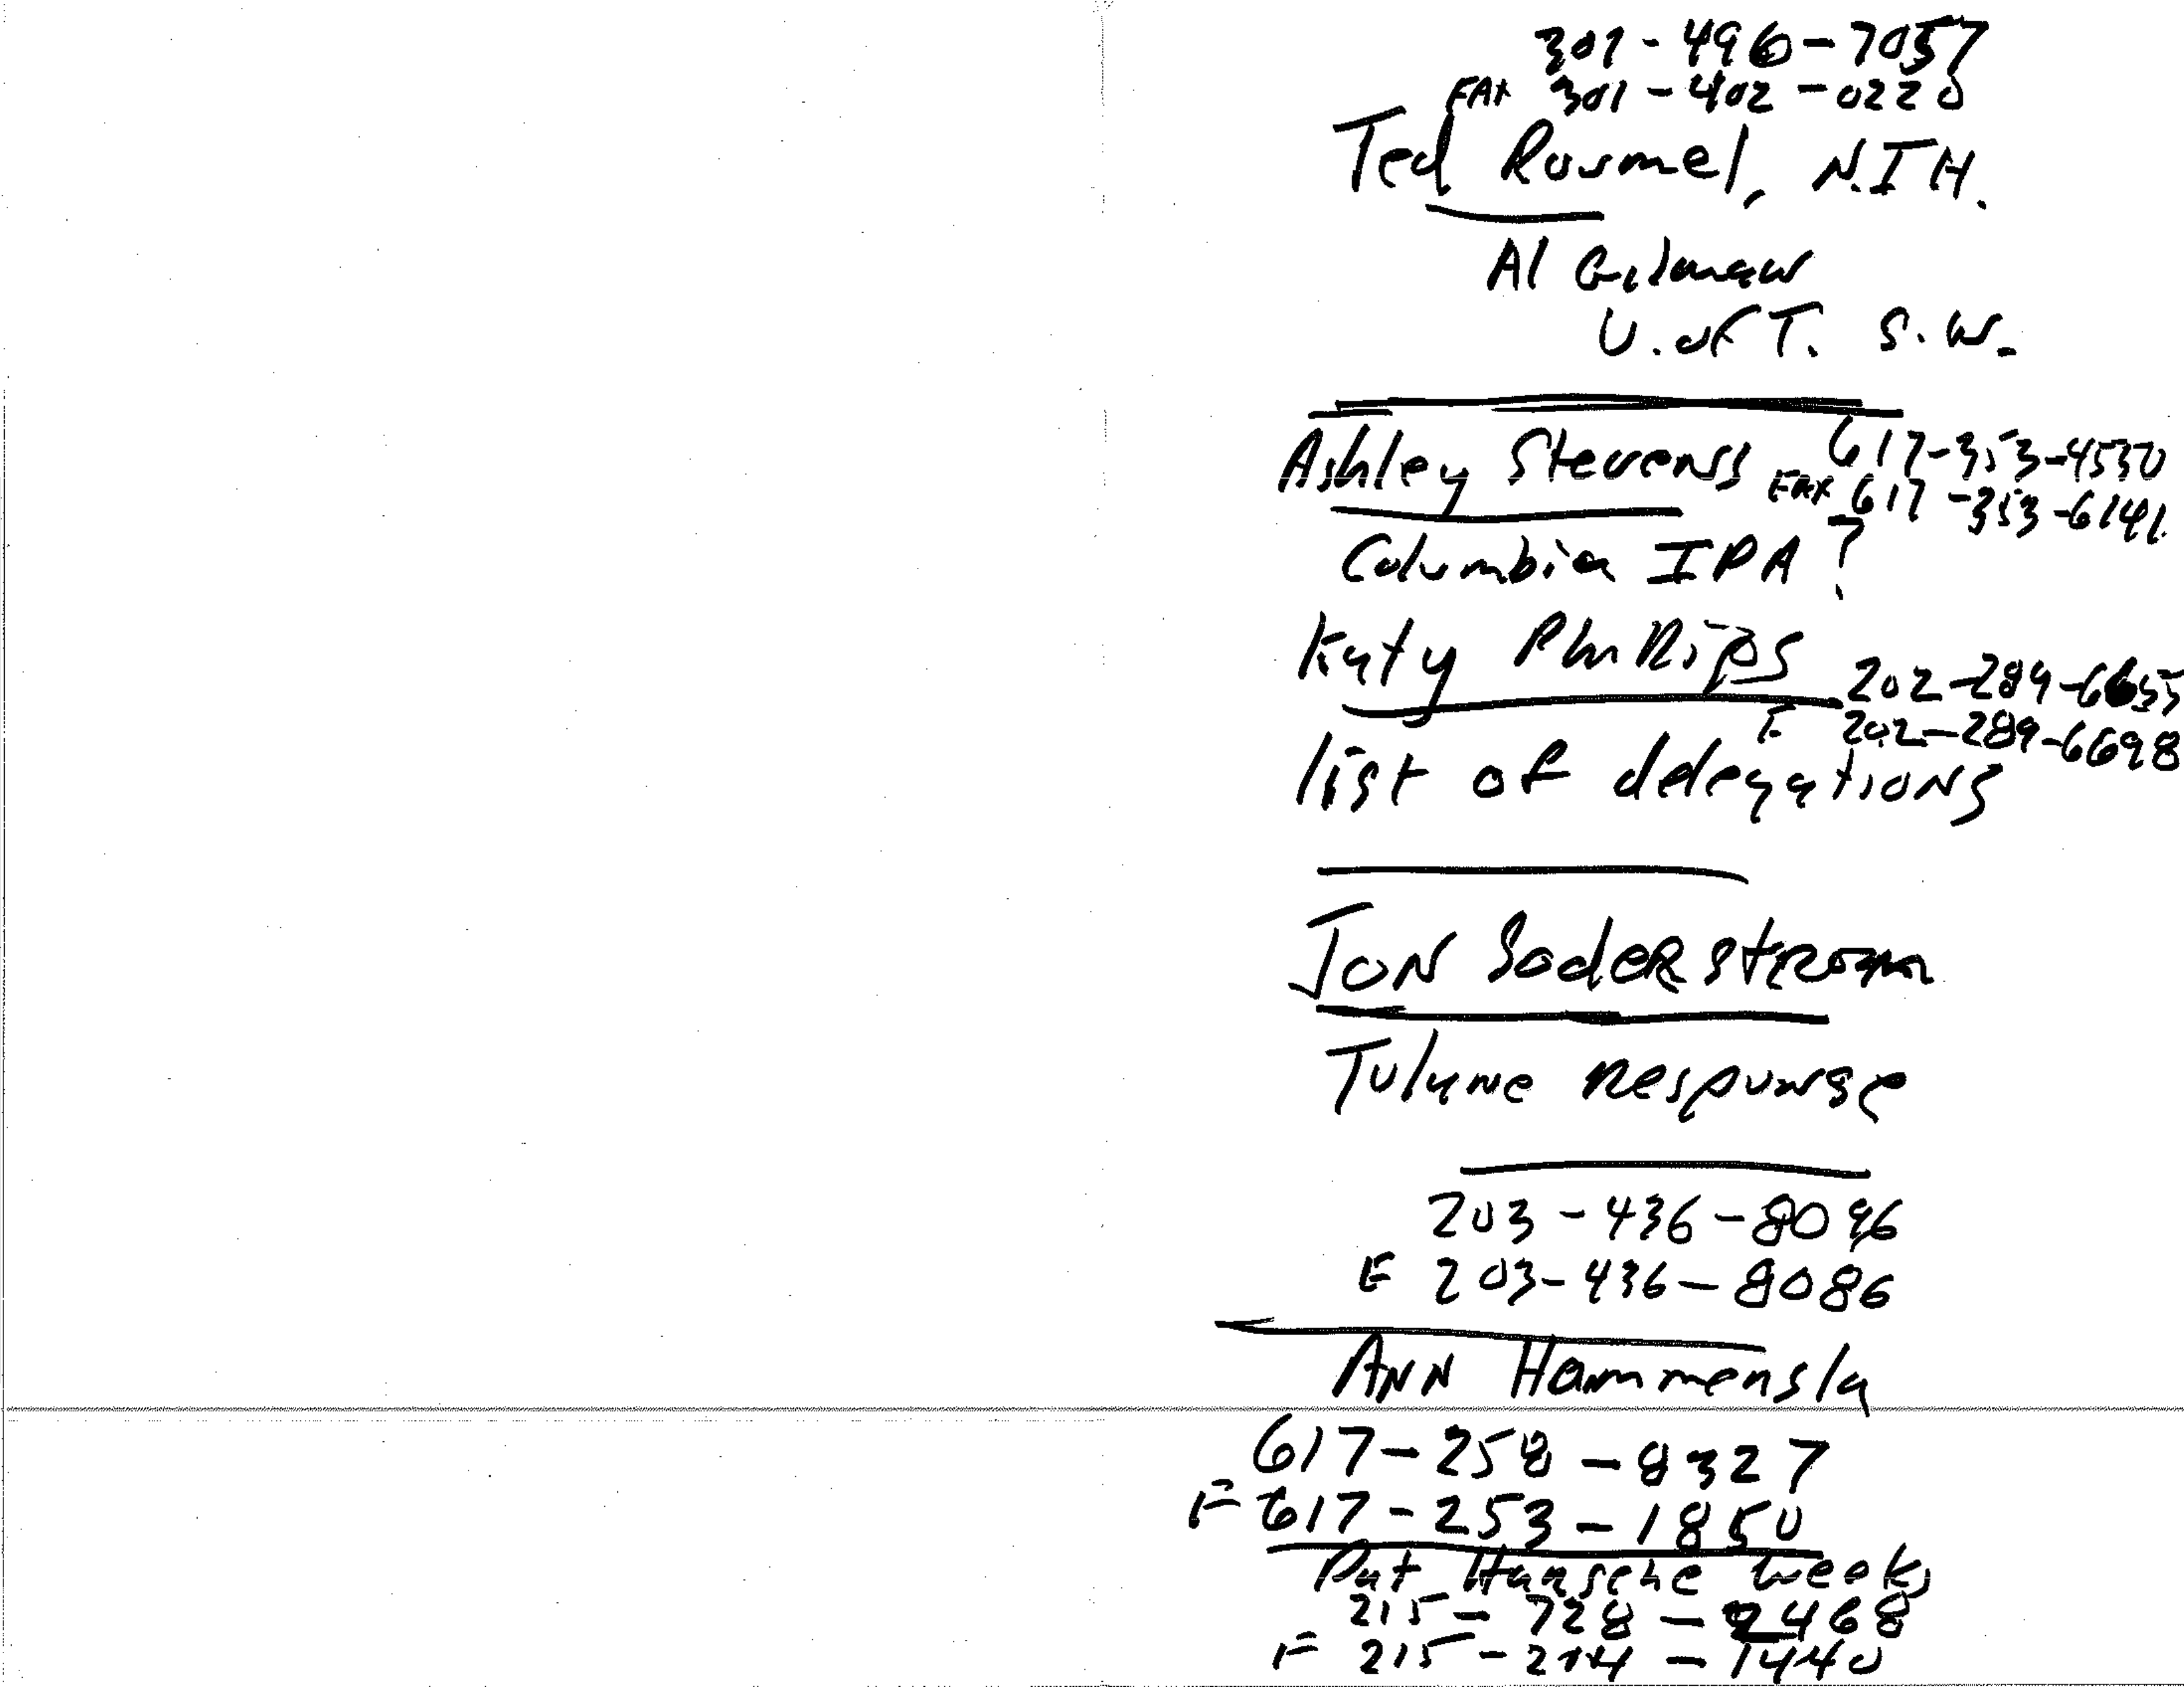 301-496-7057
FAX 301-402-0220
Ted Rousmel, N.I.H.
Al Gilman
U. of T. S.W.
Ashley Stevens 617-353-4530
FAX 617-353-6141
Columbia IPA?
Katy Phillips 202-289-6655
F 202-289-6698
list of delegations
JON Soderstrom
Tulane Response
203-436-8096
F 203-436-8086
ANN Hammersla
617-258-8327
F 617-253-1850
Pat Harsche Weeks
215-728-2468
F 215-214-1440